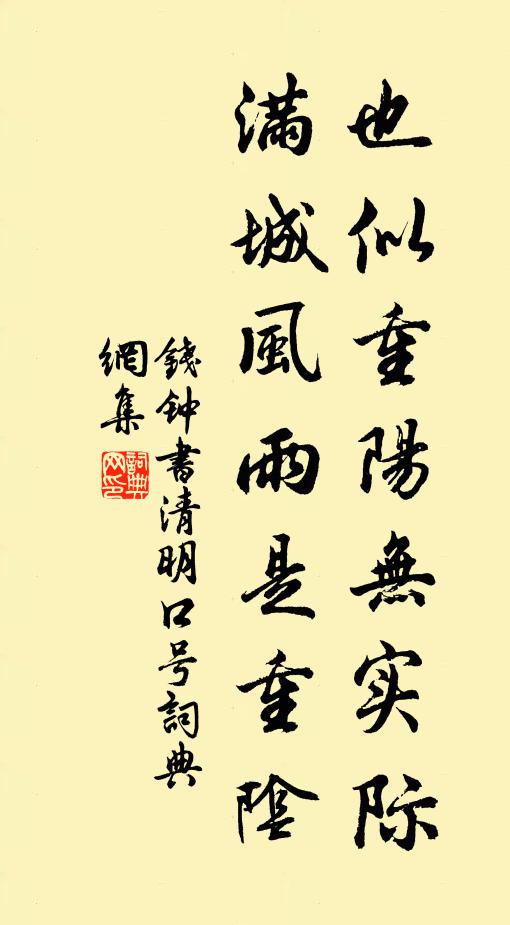 也似重陽無实际
滿城風雨是重陰
錢钟書清明口号詞典
網集
詞典网印